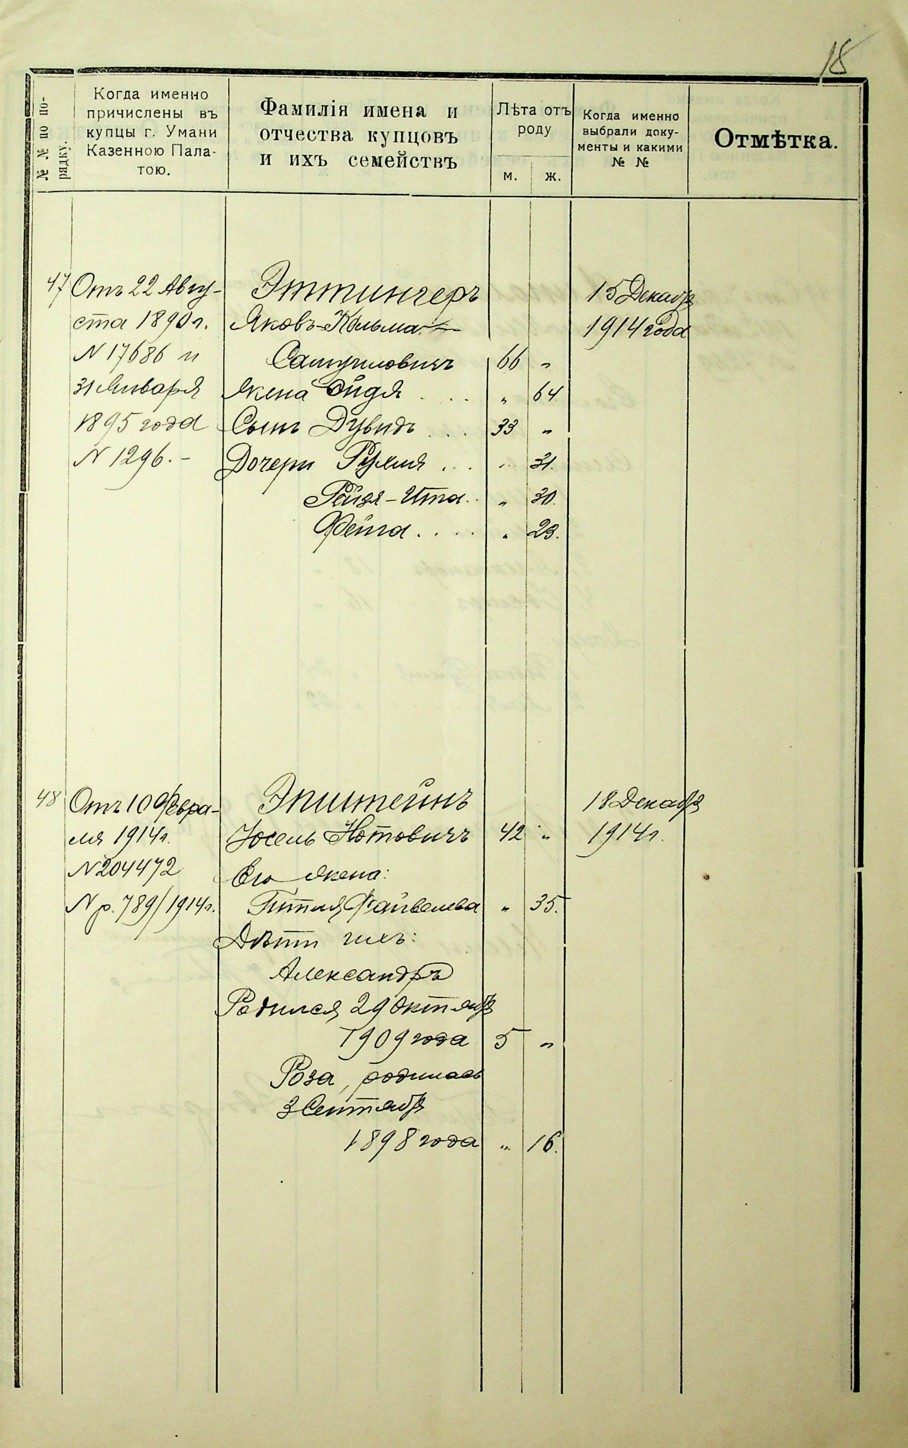 18
№ № по по-
рядку.
Когда именно
причислены въ
купцы г. Умани
Казенною Пала-
тою.
Фамилія имена и
отчества купцовъ
и ихъ семействъ
Лѣта отъ
роду
м. ж.
Когда именно
выбрали доку-
менты и какими
№ №
Отмѣтка.
47
Отъ 22 Авгу-
ста 1890 г.
N 17686 и
31 Января
1895 года
N 1296. -
Эттингеръ
Яковъ-Кальма
Самуиловичъ 66 „
Жена Эйдя . . . . „ 64
Сынъ Дувидъ . . . 33 „
Дочери Рухля . . . „ 31.
Рейзя-Ита . . „ 30.
Фейга . . . . „ 23.
15 Декабря
1914 года
48
Отъ 10 Февра-
ля 1914 г.
N 204472
N р. 789/1914 г.
Эпштейнъ
Іосель Нотовичъ 42 „
Его жена:
Гитля Файвелева „ 35.
Дѣти ихъ:
Александръ
Родился 29 Октября
1909 года 5 „
Роза, родилась
3 Сентября
1898 года „ 16.
18 Декабря
1914 г.